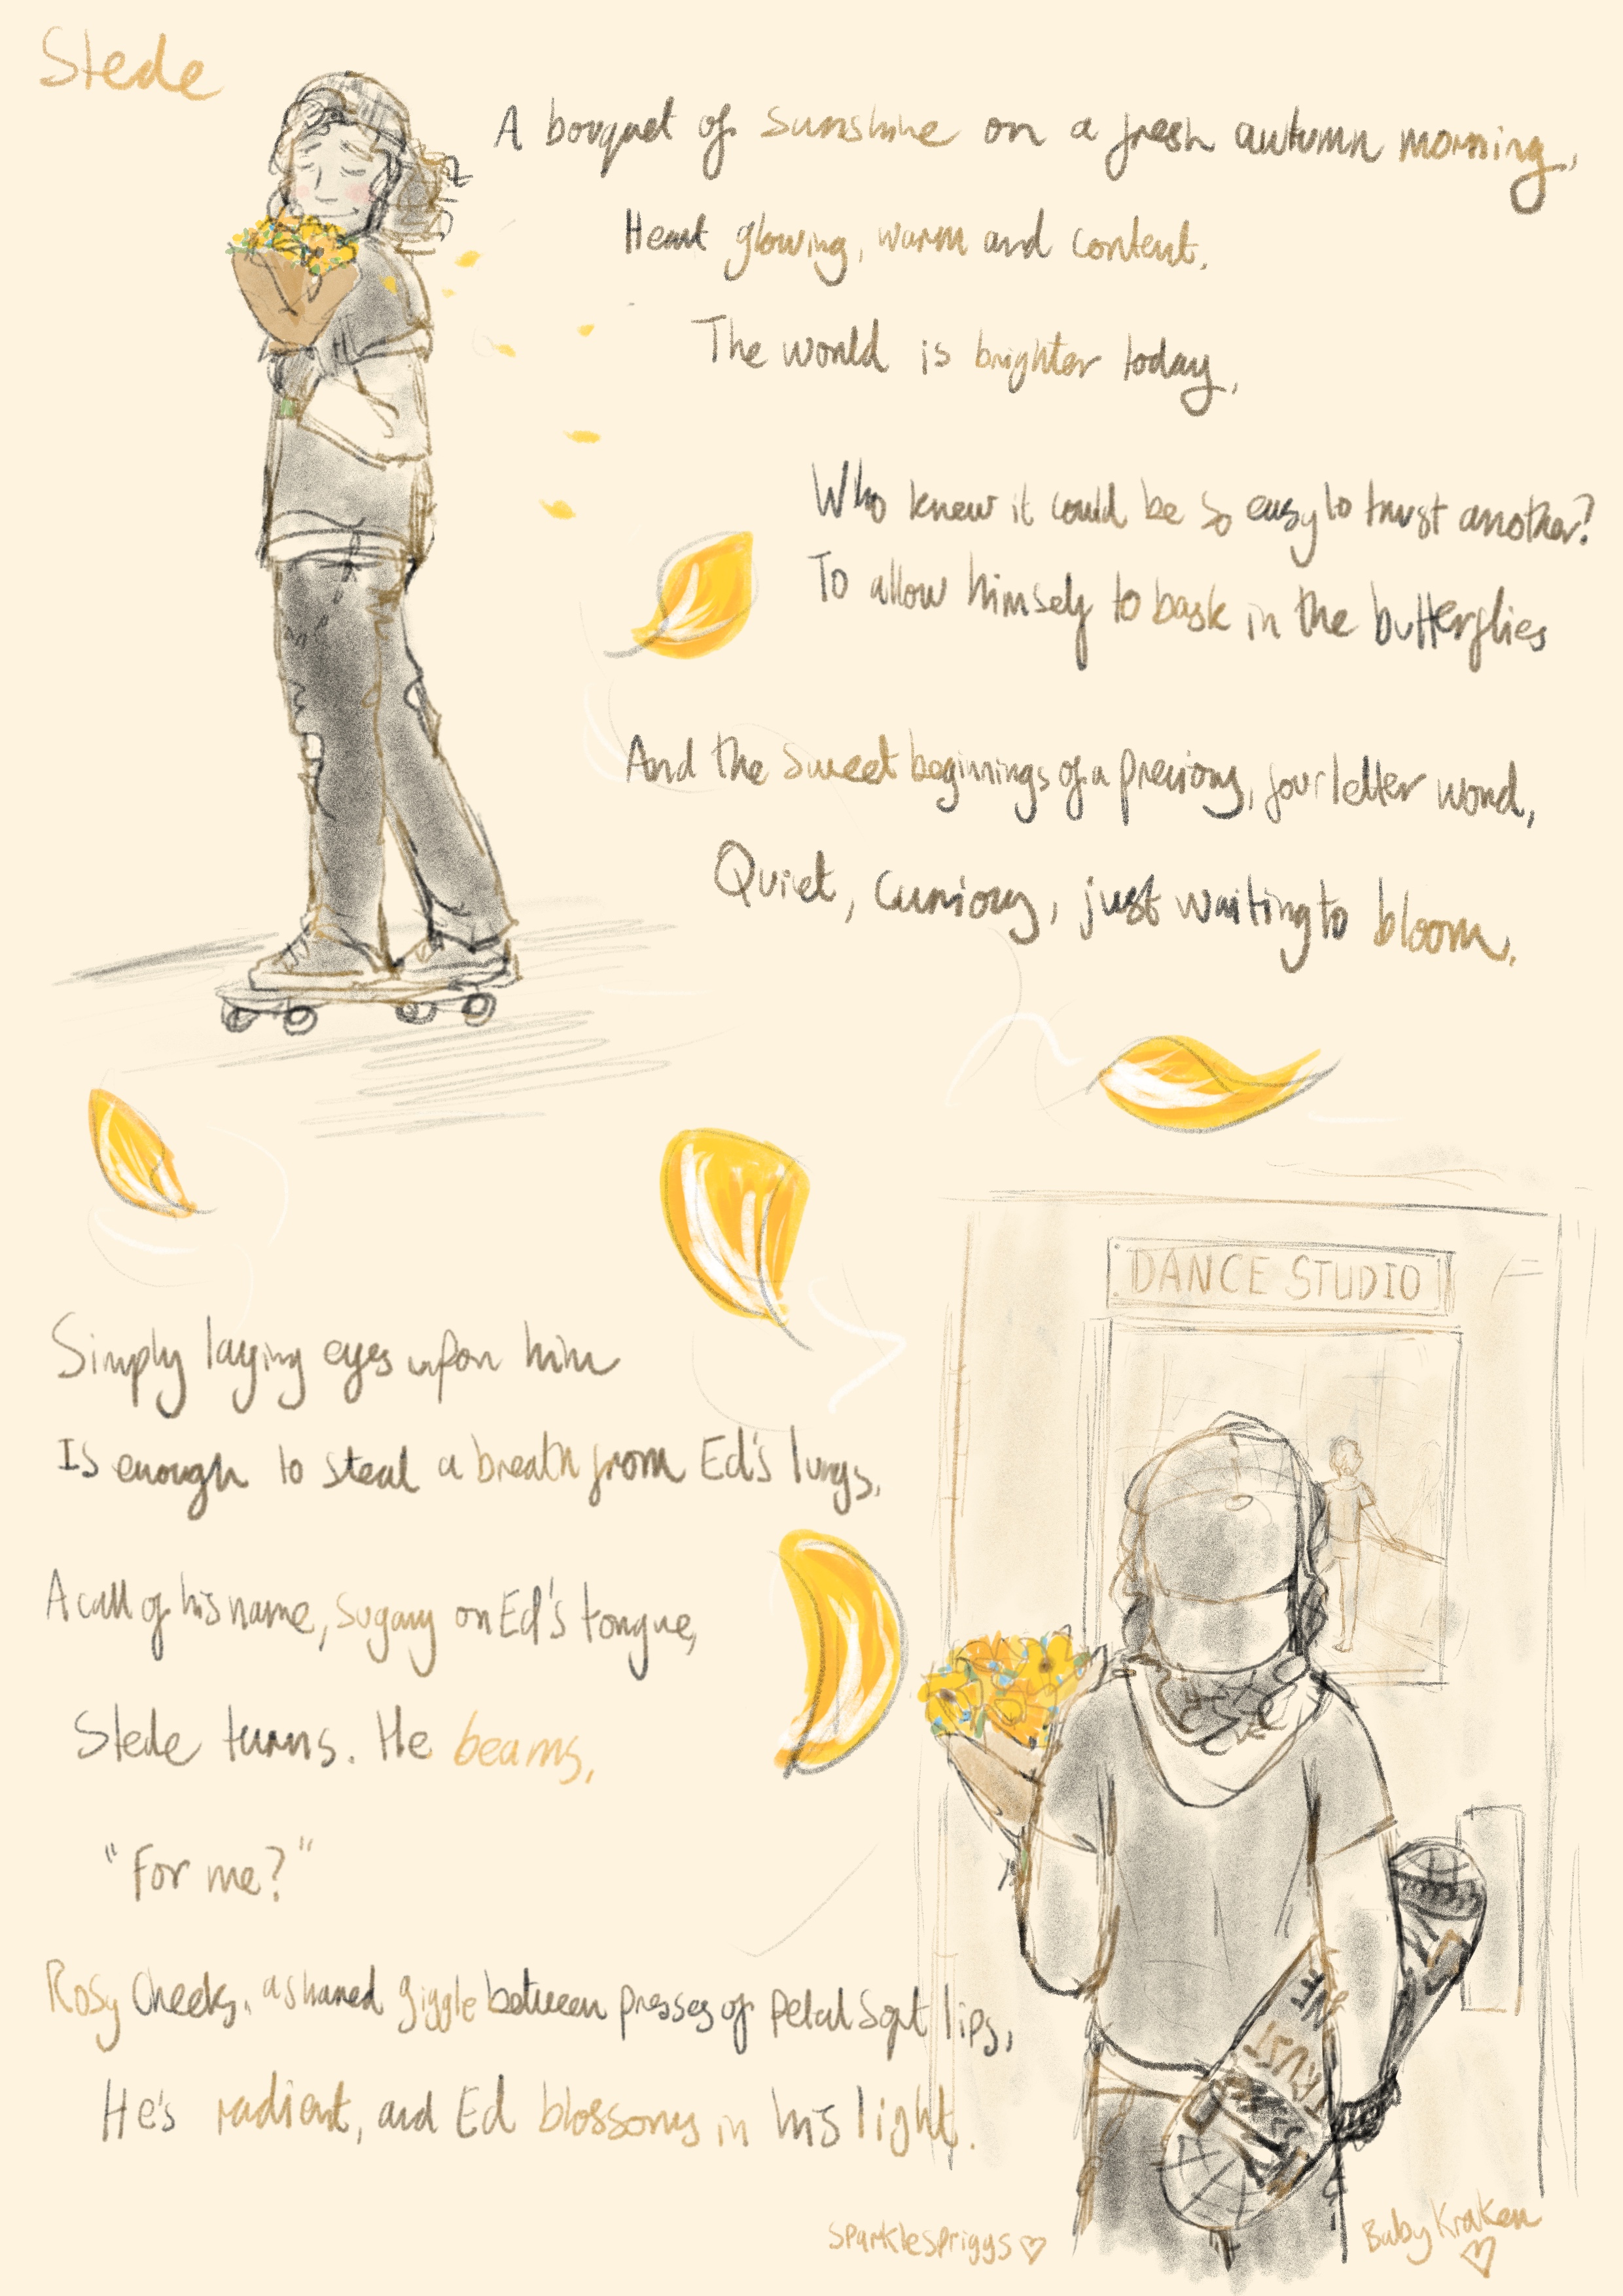 Stede
A bouquet of sunshine on a fresh autumn morning,
Heart glowing, warm and content.
The world is brighter today,
Who knew it could be so easy to trust another?
To allow himself to bask in the butterflies
And the sweet beginnings of a precious, four letter word,
Quiet, curious, just waiting to bloom.
DANCE STUDIO
Simply laying eyes upon him
Is enough to steal a breath from Ed's lungs,
A call of his name, sugary on Ed's tongue,
Stede turns. He beams,
"For me?"
Rosy cheeks, a shared giggle between presses of petal soft lips,
He's radient, and Ed blossoms in his light.
TRUST
Sparklespriggs
BabyKraken